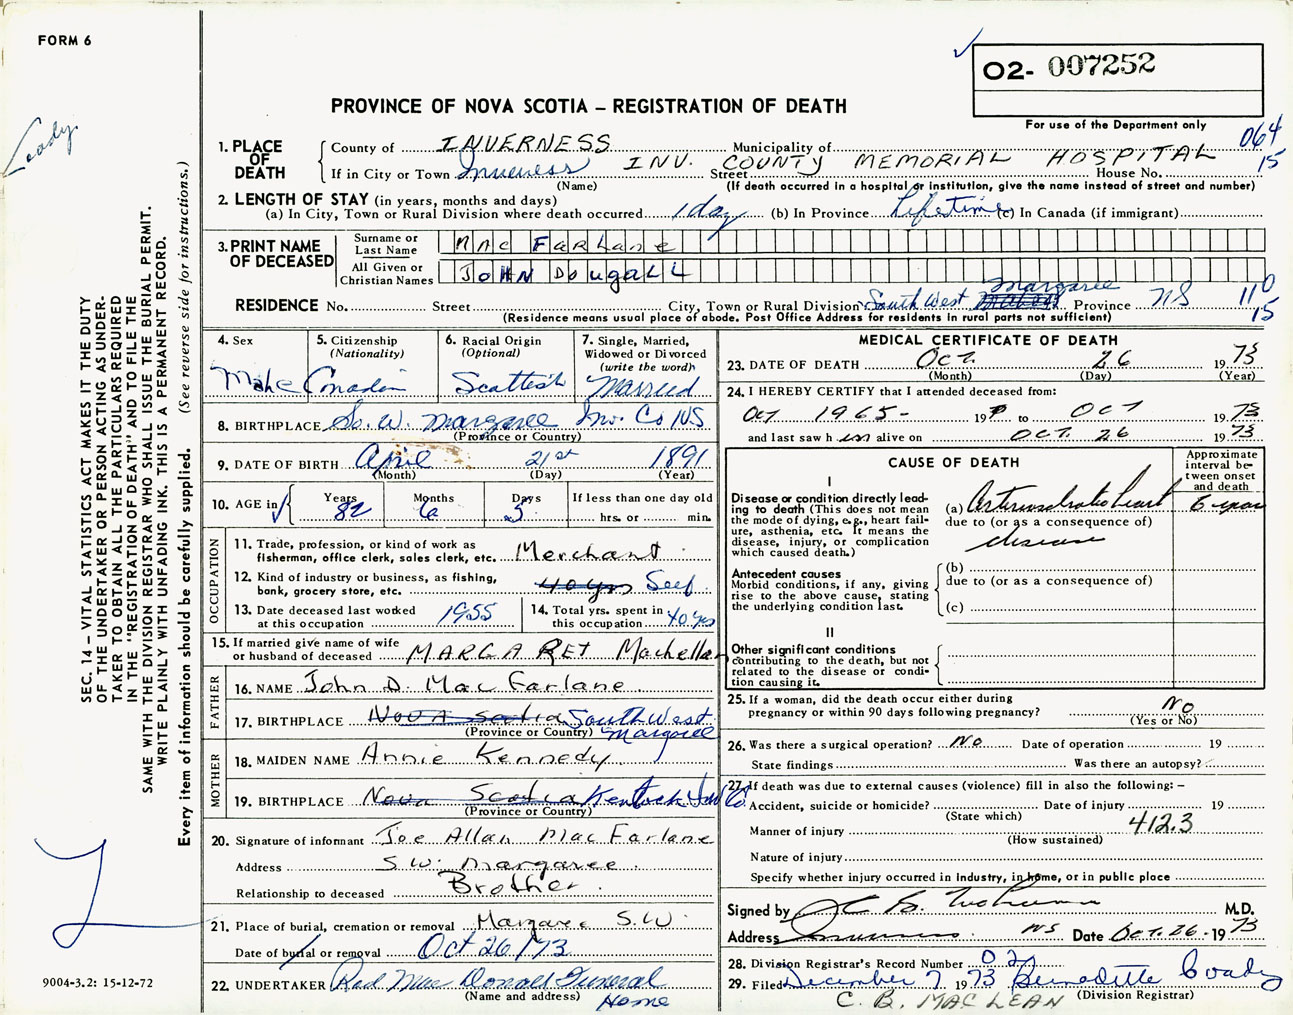 FORM 6
O2- 007252
PROVINCE OF NOVA SCOTIA – REGISTRATION OF DEATH
For use of the Department only
064
15
1. PLACE OF DEATH
County of INVERNESS Municipality of
If in City or Town Inverness Street INV. COUNTY MEMORIAL HOSPITAL House No.
(Name) (If death occurred in a hospital or institution, give the name instead of street and number)
2. LENGTH OF STAY (in years, months and days)
(a) In City, Town or Rural Division where death occurred 1 day (b) In Province Lifetime (c) In Canada (if immigrant)
3. PRINT NAME OF DECEASED
Surname or Last Name Mac Farlane
All Given or Christian Names JOHN DOugaLL
RESIDENCE No. Street City, Town or Rural Division South West Margaree Province NS 110
15
(Residence means usual place of abode. Post Office Address for residents in rural parts not sufficient)
4. Sex Male
5. Citizenship (Nationality) Canadian
6. Racial Origin (Optional) Scottish
7. Single, Married, Widowed or Divorced (write the word) Married
8. BIRTHPLACE So. W. Margaree Inv. Co NS
(Province or Country)
9. DATE OF BIRTH April 21st 1891
(Month) (Day) (Year)
10. AGE in Years 82 Months 6 Days 5 If less than one day old
hrs. or min.
OCCUPATION
11. Trade, profession, or kind of work as fisherman, office clerk, sales clerk, etc. Merchant
12. Kind of industry or business, as fishing, bank, grocery store, etc. 40 yrs Self
13. Date deceased last worked at this occupation 1955
14. Total yrs. spent in this occupation 40 yrs
15. If married give name of wife or husband of deceased MARGARET Maclellan
FATHER
16. NAME John D. Mac Farlane
17. BIRTHPLACE Nova Scotia South West Margaree
(Province or Country)
MOTHER
18. MAIDEN NAME Annie Kennedy
19. BIRTHPLACE Nova Scotia Inv Co.
(Province or Country)
20. Signature of informant Joe Allan Mac Farlane
Address S.W. Margaree
Relationship to deceased Brother
21. Place of burial, cremation or removal Margaree S.W.
Date of burial or removal Oct 26/73
22. UNDERTAKER Mac Donald Funeral Home
(Name and address)
MEDICAL CERTIFICATE OF DEATH
23. DATE OF DEATH Oct. 26 1973
(Month) (Day) (Year)
24. I HEREBY CERTIFY that I attended deceased from:
Oct 1965 - 19 to OCT 1973
and last saw him alive on OCT. 26 1973
CAUSE OF DEATH
Approximate interval between onset and death
I
Disease or condition directly leading to death (This does not mean the mode of dying, e.g., heart failure, asthenia, etc. It means the disease, injury, or complication which caused death.)
(a) heart 6 years
due to (or as a consequence of)
disease
Antecedent causes
Morbid conditions, if any, giving rise to the above cause, stating the underlying condition last.
(b)
due to (or as a consequence of)
(c)
II
Other significant conditions contributing to the death, but not related to the disease or condition causing it.
25. If a woman, did the death occur either during pregnancy or within 90 days following pregnancy? No
(Yes or No)
26. Was there a surgical operation? No Date of operation 19
State findings Was there an autopsy?
27. If death was due to external causes (violence) fill in also the following: –
Accident, suicide or homicide? Date of injury 19
(State which)
412.3
Manner of injury
(How sustained)
Nature of injury
Specify whether injury occurred in industry, in home, or in public place
Signed by M.D.
Address Inverness NS Date Oct. 26 - 1973
28. Division Registrar's Record Number 02
29. Filed December 7 1973 Bernadette Coady
C. B. MACLEAN (Division Registrar)
SEC. 14 – VITAL STATISTICS ACT MAKES IT THE DUTY
OF THE UNDERTAKER OR PERSON ACTING AS UNDER-
TAKER TO OBTAIN ALL THE PARTICULARS REQUIRED
IN THE "REGISTRATION OF DEATH" AND TO FILE THE
SAME WITH THE DIVISION REGISTRAR WHO SHALL ISSUE THE BURIAL PERMIT.
WRITE PLAINLY WITH UNFADING INK. THIS IS A PERMANENT RECORD.
Every item of information should be carefully supplied. (See reverse side for instructions.)
9004-3.2: 15-12-72